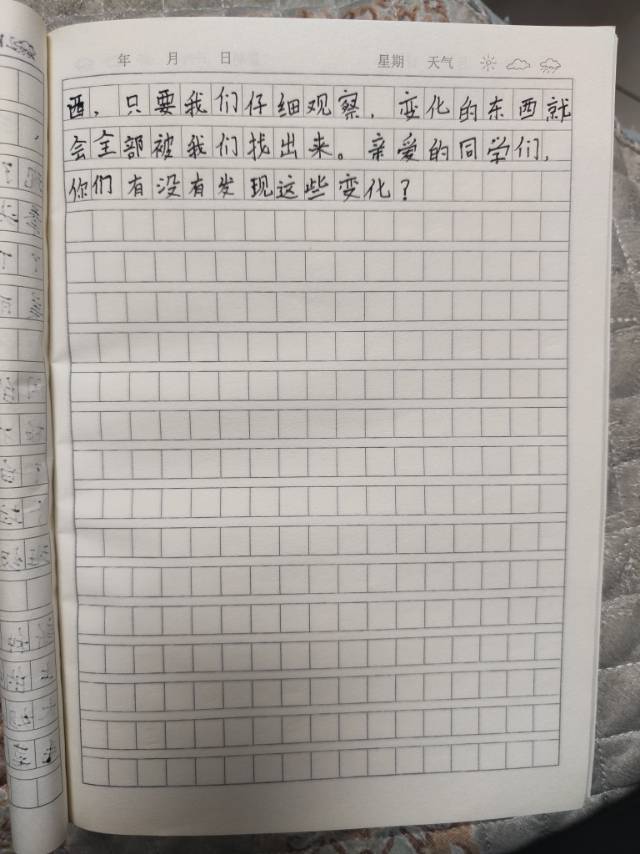 年 月 日 星期 天气
西，只要我们仔细观察，变化的东西就
会全部被我们找出来。亲爱的同学们，
你们有没有发现这些变化？